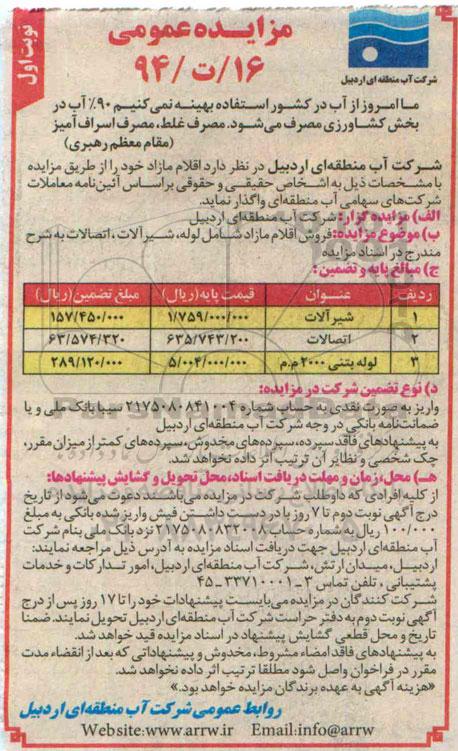 نوبت اول
مزایده عمومی
۱۶/ت /۹۴
شرکت آب منطقه ای اردبیل
ما امروز از آب در کشور استفاده بهینه نمی کنیم ۹۰٪ آب در
بخش کشاورزی مصرف می شود. مصرف غلط، مصرف اسراف آمیز
(مقام معظم رهبری)
شرکت آب منطقه‌ای اردبیل در نظر دارد اقلام مازاد خود را از طریق مزایده
با مشخصات ذیل به اشخاص حقیقی و حقوقی بر اساس آئین نامه معاملات
شرکت های سهامی آب منطقه ای واگذار نماید.
الف) مزایده گزار: شرکت آب منطقه ای اردبیل
ب) موضوع مزایده: فروش اقلام مازاد شامل لوله، شیرآلات ، اتصالات به شرح
مندرج در اسناد مزایده
ج) مبالغ پایه و تضمین :
ردیف عنوان قیمت پایه (ریال) مبلغ تضمین (ریال)
۱ شیرآلات ۱/۷۵۹/۰۰۰/۰۰۰ ۱۵۷/۴۵۰/۰۰۰
۲ اتصالات ۶۳۵/۷۴۳/۲۰۰ ۶۳/۵۷۴/۳۲۰
۳ لوله بتنی ۲۰۰۰ م.م ۵/۰۰۴/۰۰۰/۰۰۰ ۲۸۹/۱۲۰/۰۰۰
د) نوع تضمین شرکت در مزایده:
واریز به صورت نقدی به حساب شماره ۲۱۷۵۰۸۰۸۴۱۰۰۴ سیبا بانک ملی و یا
ضمانت‌نامه بانکی در وجه شرکت آب منطقه ای اردبیل
به پیشنهادهای فاقد سپرده، سپرده های مخدوش، سپرده های کمتر از میزان مقرر،
چک شخصی و نظایر آن ترتیب اثر داده نخواهد شد.
هـ) محل، زمان و مهلت دریافت اسناد، محل تحویل و گشایش پیشنهادها:
از کلیه افرادی که داوطلب شرکت در مزایده می باشند دعوت می شود از تاریخ
درج آگهی نوبت دوم تا ۷ روز با در دست داشتن فیش واریز شده بانکی به مبلغ
۱۰۰/۰۰۰ ریال به شماره حساب ۲۱۷۵۰۸۰۸۳۲۰۰۸ نزد بانک ملی بنام شرکت
آب منطقه ای اردبیل جهت دریافت اسناد مزایده به آدرس ذیل مراجعه نمایند:
اردبیل، میدان ارتش، شرکت آب منطقه ای اردبیل، امور تدارکات و خدمات
پشتیبانی ، تلفن تماس ۳-۳۳۷۱۰۰۰۱-۴۵
شرکت کنندگان در مزایده می بایست پیشنهادات خود را تا ۱۷ روز پس از درج
آگهی نوبت دوم به دفتر حراست شرکت آب منطقه ای اردبیل تحویل نمایند. ضمنا
تاریخ و محل قطعی گشایش پیشنهاد در اسناد مزایده قید خواهد شد.
به پیشنهادهای فاقد امضاء مشروط، مخدوش و پیشنهاداتی که بعد از انقضاء مدت
مقرر در فراخوان واصل شود مطلقا ترتیب اثر داده نخواهد شد.
«هزینه آگهی به عهده برندگان مزایده خواهد بود.»
روابط عمومی شرکت آب منطقه ای اردبیل
Website:www.arrw.ir Email:info@arrw